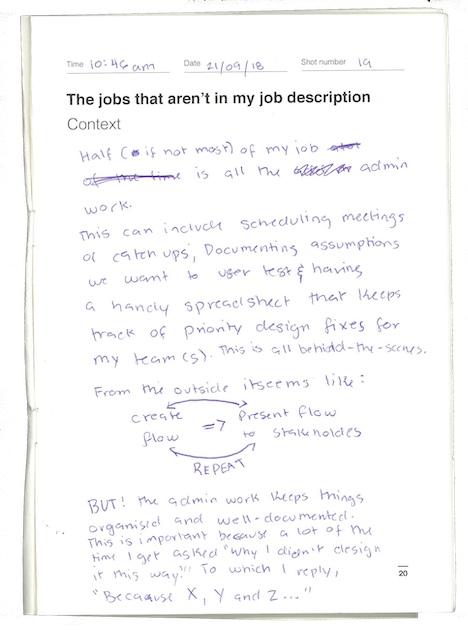 Time 10:46am Date 21/09/18 Shot number 19
The jobs that aren't in my job description
Context
Half (if not most) of my job
of the time is all the admin
work.
This can include scheduling meetings
or catch ups, Documenting assumptions
we want to user test & having
a handy spreadsheet that keeps
track of priority design fixes for
my team(s). This is all behind-the-scenes.
From the outside it seems like:
create => Present flow
flow to stakeholdes
REPEAT
BUT! The admin work keeps things
organised and well-documented.
This is important because a lot of the
time I get asked "Why I didn't design
it this way?" To which I reply,
"Because X, Y and Z..."
20